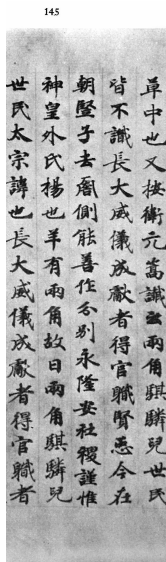 145
草中也又按衛元嵩讖云兩角騏驎兒世民
皆不識長大威儀成獻者得官職賢愚今在
朝竪子去君側能善作分別永隆安社稷謹惟
神皇外氏楊也羊有兩角故曰兩角騏驎兒
世民太宗諱也長大威儀成獻者得官職者